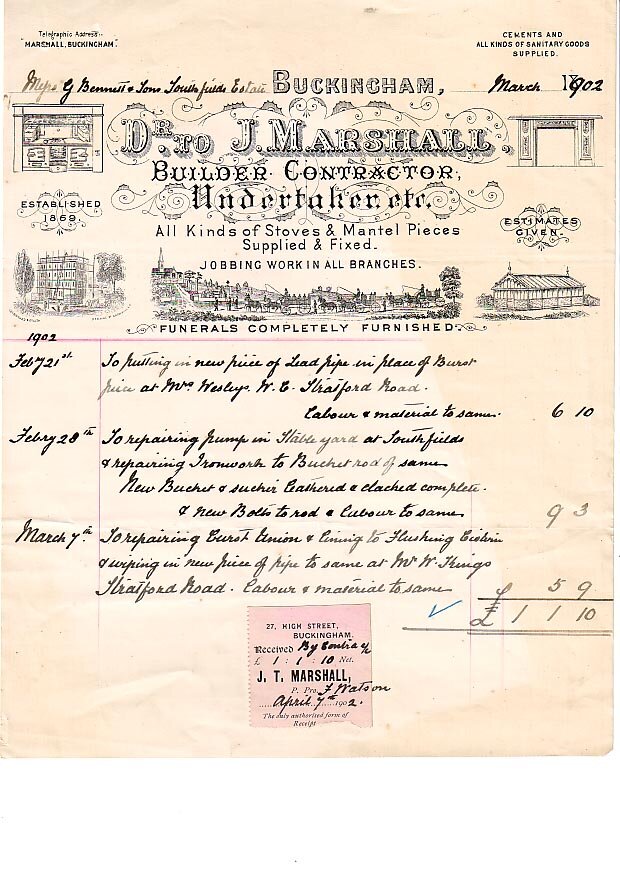 Telegraphic Address:-
"MARSHALL, BUCKINGHAM."
CEMENTS AND
ALL KINDS OF SANITARY GOODS
SUPPLIED.
Messrs G Bennett & Sons Southfields Estate BUCKINGHAM, March 1902
DR. TO J. MARSHALL.
BUILDER CONTRACTOR,
Undertaker, etc.
ESTABLISHED
1869.
ESTIMATES
GIVEN.
All Kinds of Stoves & Mantel Pieces
Supplied & Fixed.
JOBBING WORK IN ALL BRANCHES.
FUNERALS COMPLETELY FURNISHED.
1902
Feby 21st To putting in new piece of Lead pipe in place of Burst
piece at Mrs Wesleys W. C. Stratford Road.
Labour & material to same. 6 10
Febry 28th To repairing pump in Stable yard at Southfields
& repairing Ironwork to Bucket rod of same
New Bucket & sucker Leathered & clacked complete.
& New Bolts to rod & Labour to same 9 3
March 7th To repairing Burst Union & Lining to Flushing Cistern
& wiping in new piece of pipe to same at Mr W. Kings
Stratford Road. Labour & material to same 5 9
£ 1 1 10
27, HIGH STREET,
BUCKINGHAM.
Received By Contra a/c
£ 1 : 1 : 10 Net.
J. T. MARSHALL,
P. Pro. F Watson
April 7th 1902.
The only authorised form of
Receipt